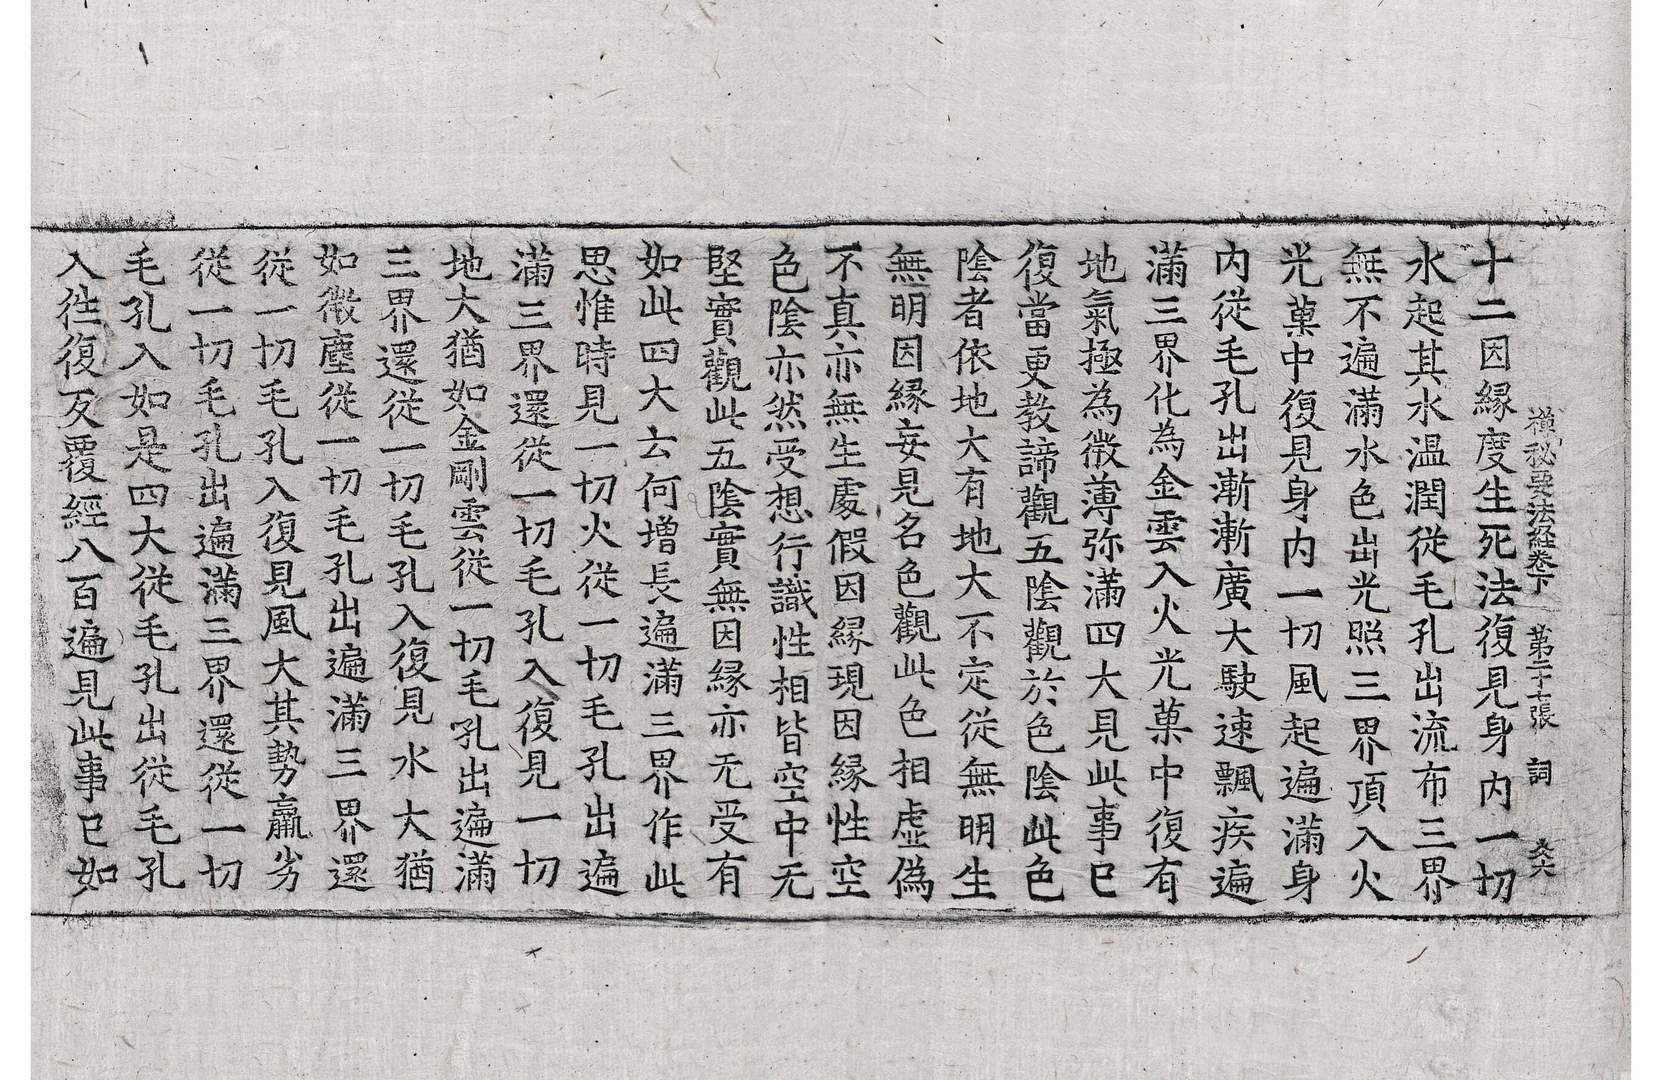 禪秘要法経卷下 第二十七張 詞
十二因縁度生死法復見身内一切
水起其水温潤從毛孔出流布三界
無不遍滿水色出光照三界頂入火
光菓中復見身内一切風起遍滿身
内從毛孔出漸漸廣大駛速飄疾遍
滿三界化為金雲入火光菓中復有
地氣極為微薄弥滿四大見此事已
復當更教諦觀五陰觀於色陰此色
陰者依地大有地大不定從無明生
無明因縁妄見名色觀此色相虚偽
不真亦無生處假因縁現因縁性空
色陰亦然受想行識性相皆空中无
堅實觀此五陰實無因縁亦无受有
如此四大云何增長遍滿三界作此
思惟時見一切火從一切毛孔出遍
滿三界還從一切毛孔入復見一切
地大猶如金剛雲從一切毛孔出遍滿
三界還從一切毛孔入復見水大猶
如微塵從一切毛孔出遍滿三界還
從一切毛孔入復見風大其勢羸劣
從一切毛孔出遍滿三界還從一切
毛孔入如是四大從毛孔出從毛孔
入往復反覆經八百遍見此事已如